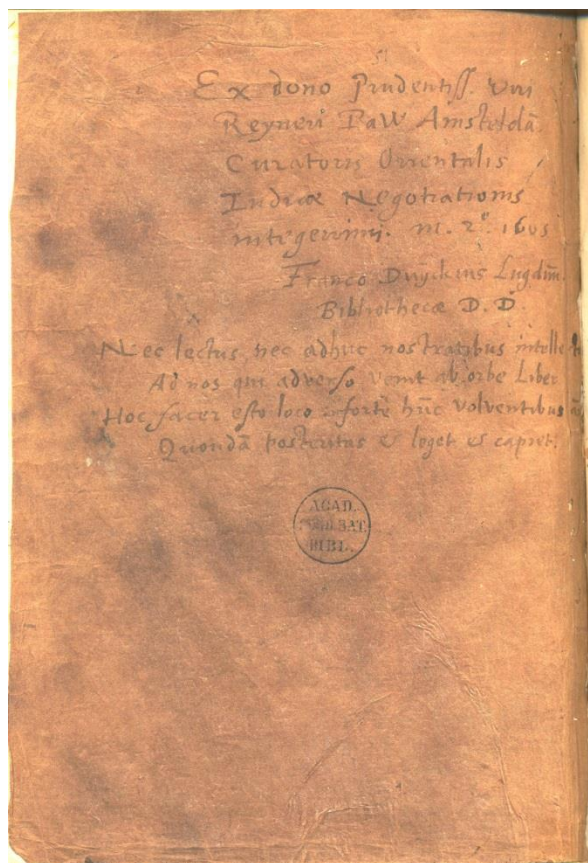 Ex dono Prudentiss. Viri
Reyneri Paw Amsteldā
Curatoris Orientalis
Indicæ Negotiationis
integerrimi. m. 2º. 1605
Franco Duyckius Lugdun.
Bibliothecæ D. D.
Nec lectus, nec adhuc nostratibus intelle
Ad nos qui adverso venit ab orbe Liber
Hoc sacer esto loco forte hūc volventibus
Quondā posteritas & leget & capiet.
ACAD.
LUGD. BAT.
BIBL.